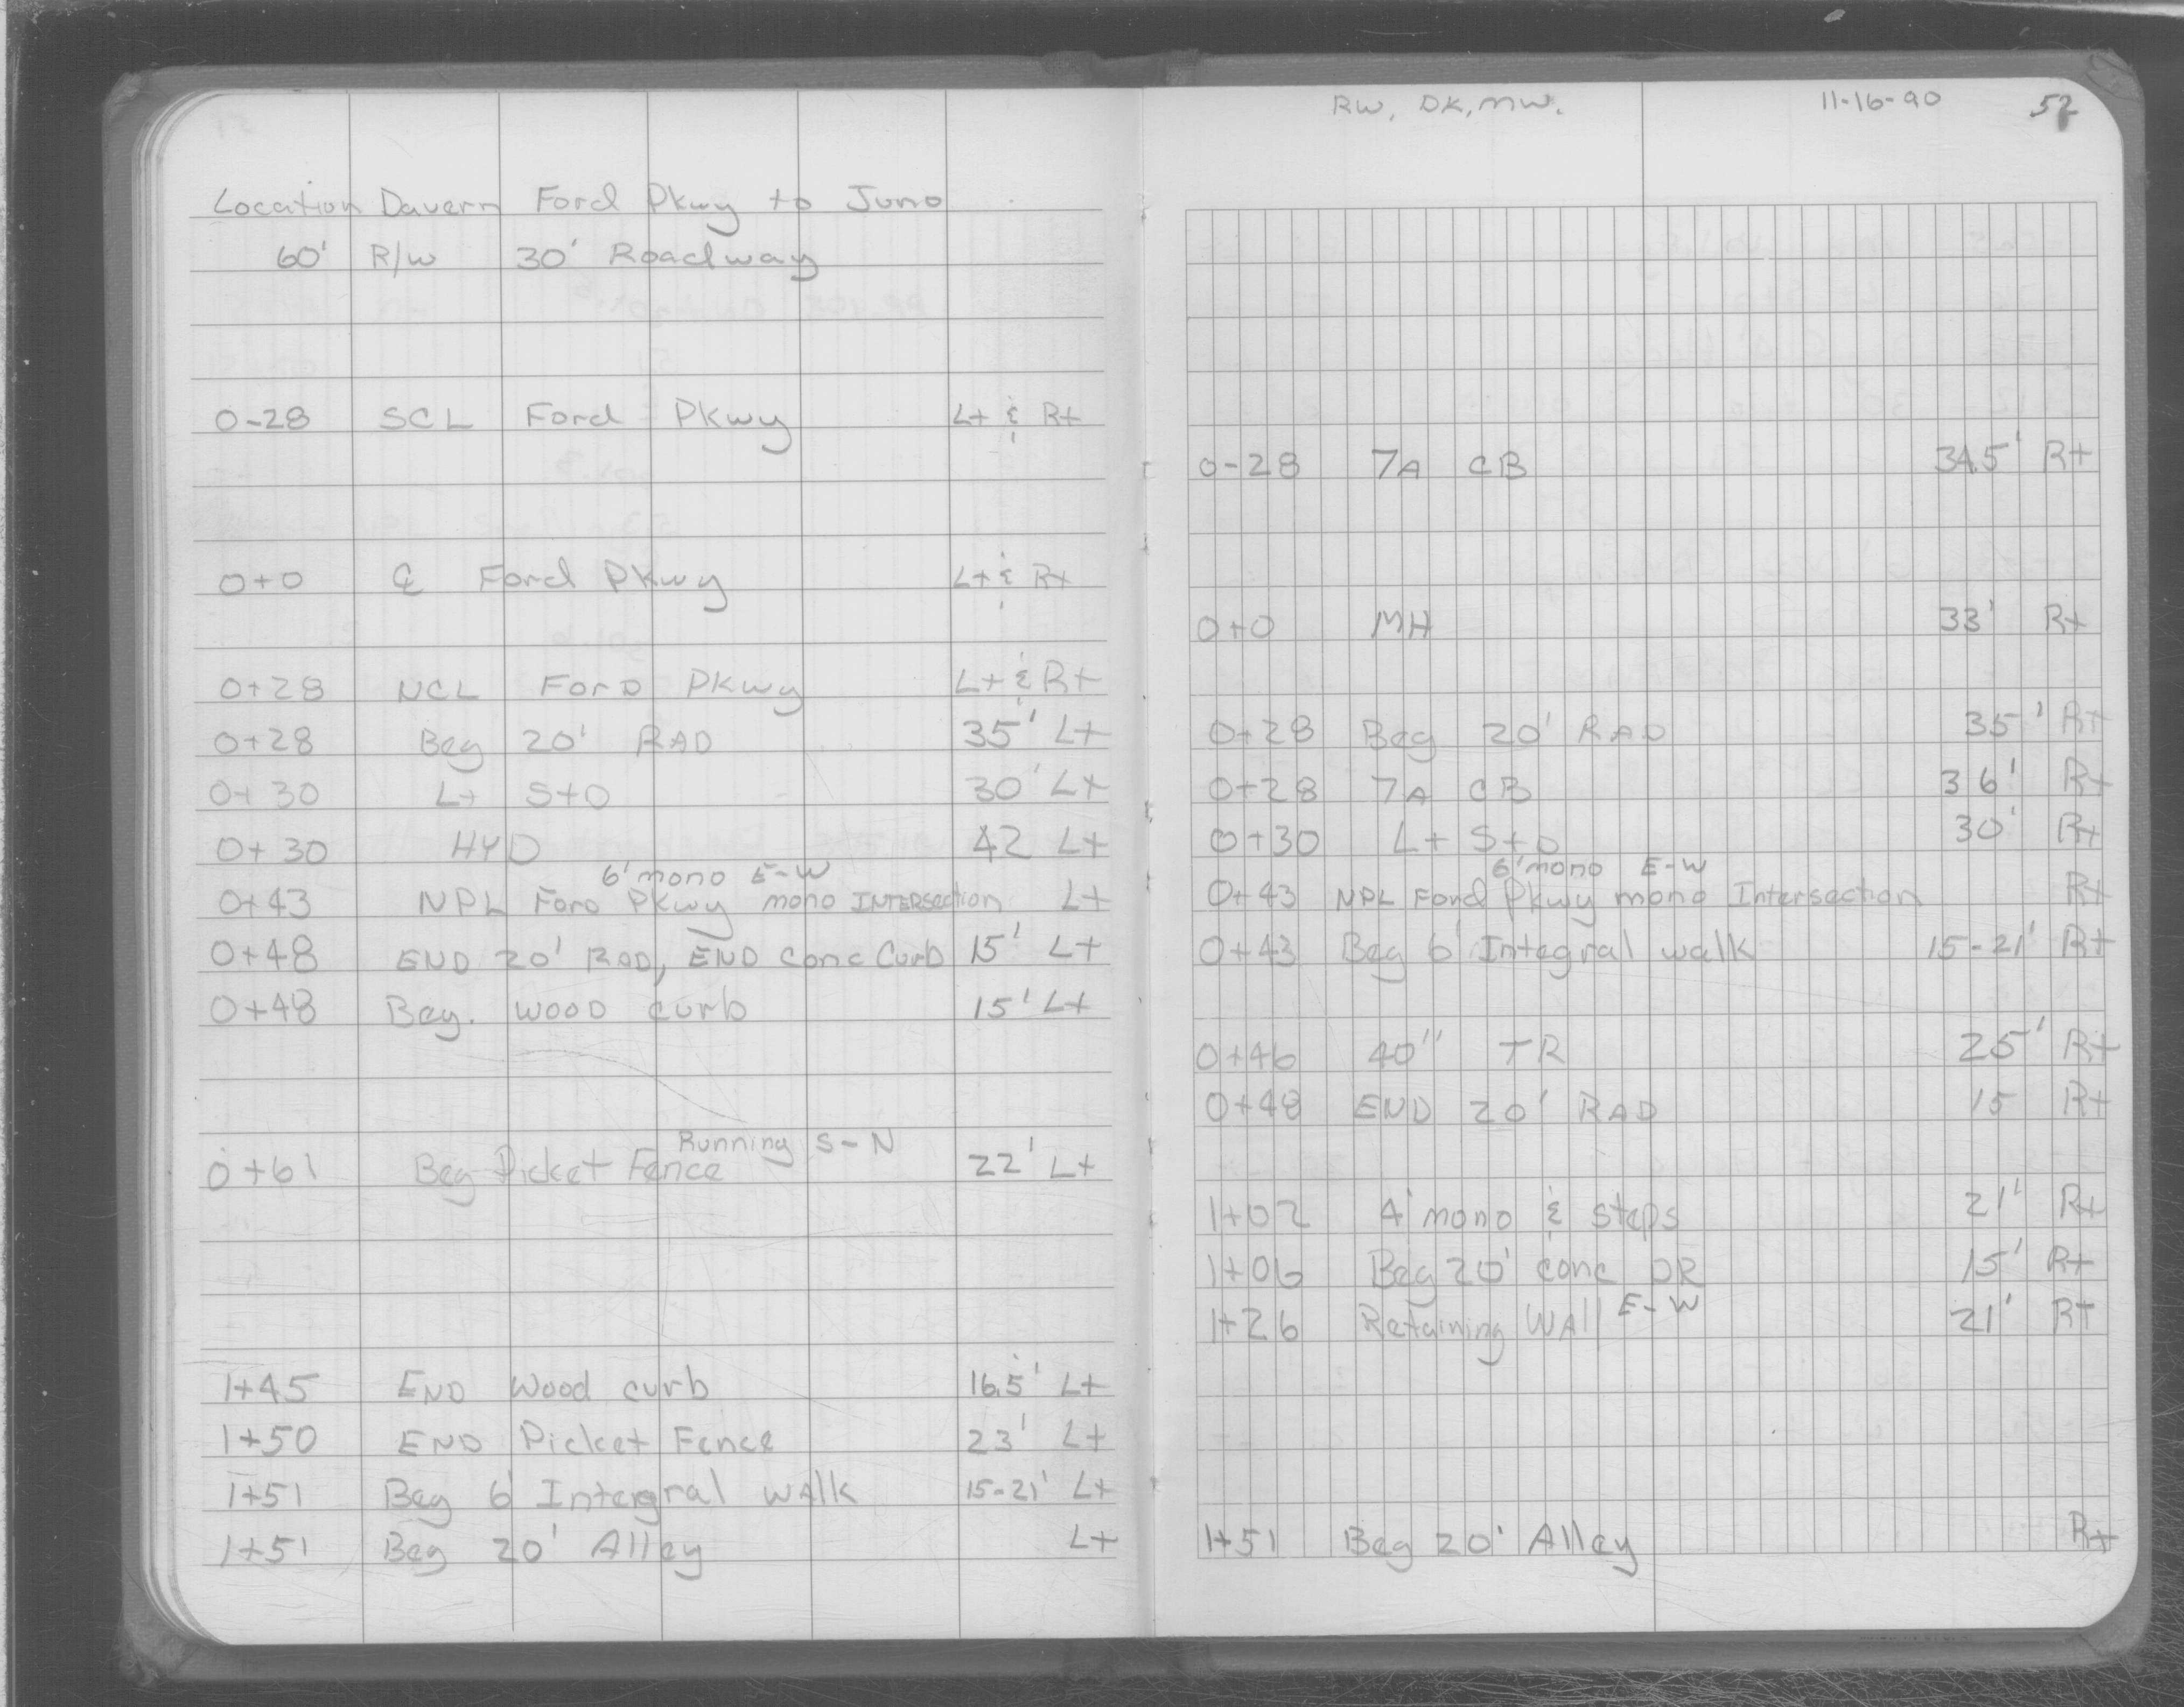 Location Davern Ford Pkwy to Juno
60' R/W 30' Roadway
0-28 SCL Ford Pkwy Lt & Rt
0+0 ℄ Ford Pkwy Lt & Rt
0+28 NCL Ford Pkwy Lt & Rt
0+28 Beg 20' RAD 35' Lt
0+30 Lt StD 30' Lt
0+30 HYD 42 Lt
6' mono E-W
0+43 NPL Ford Pkwy mono INTERSection Lt
0+48 END 20' RAD, END Conc Curb 15' Lt
0+48 Beg. Wood curb 15' Lt
Running S-N
0+61 Beg Picket Fence 22' Lt
1+45 END Wood curb 16.5' Lt
1+50 END Picket Fence 23' Lt
1+51 Beg 6' Intergral walk 15-21' Lt
1+51 Beg 20' Alley Lt
RW, DK, MW. 11-16-90 52
0-28 7A CB 34.5' Rt
0+0 MH 33' Rt
0+28 Beg 20' RAD 35' Rt
0+28 7A CB 36' Rt
0+30 Lt StD 30' Rt
6' mono E-W
0+43 NPL Ford Pkwy mono Intersection Rt
0+43 Beg 6' Integral walk 15-21' Rt
0+46 40" TR 25' Rt
0+48 END 20' RAD 15 Rt
1+02 4' mono & steps 21' Rt
1+06 Beg 20' conc DR 15' Rt
1+26 Retaining WAll E-W 21' Rt
1+51 Beg 20' Alley Rt